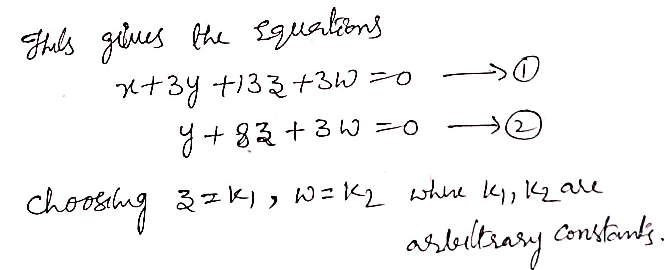 This gives the Equations
x+3y+13z+3w=0 → ①
y+8z+3w=0 → ②
choosing z=k₁, w=k₂ where k₁, k₂ are
arbitrary constants.